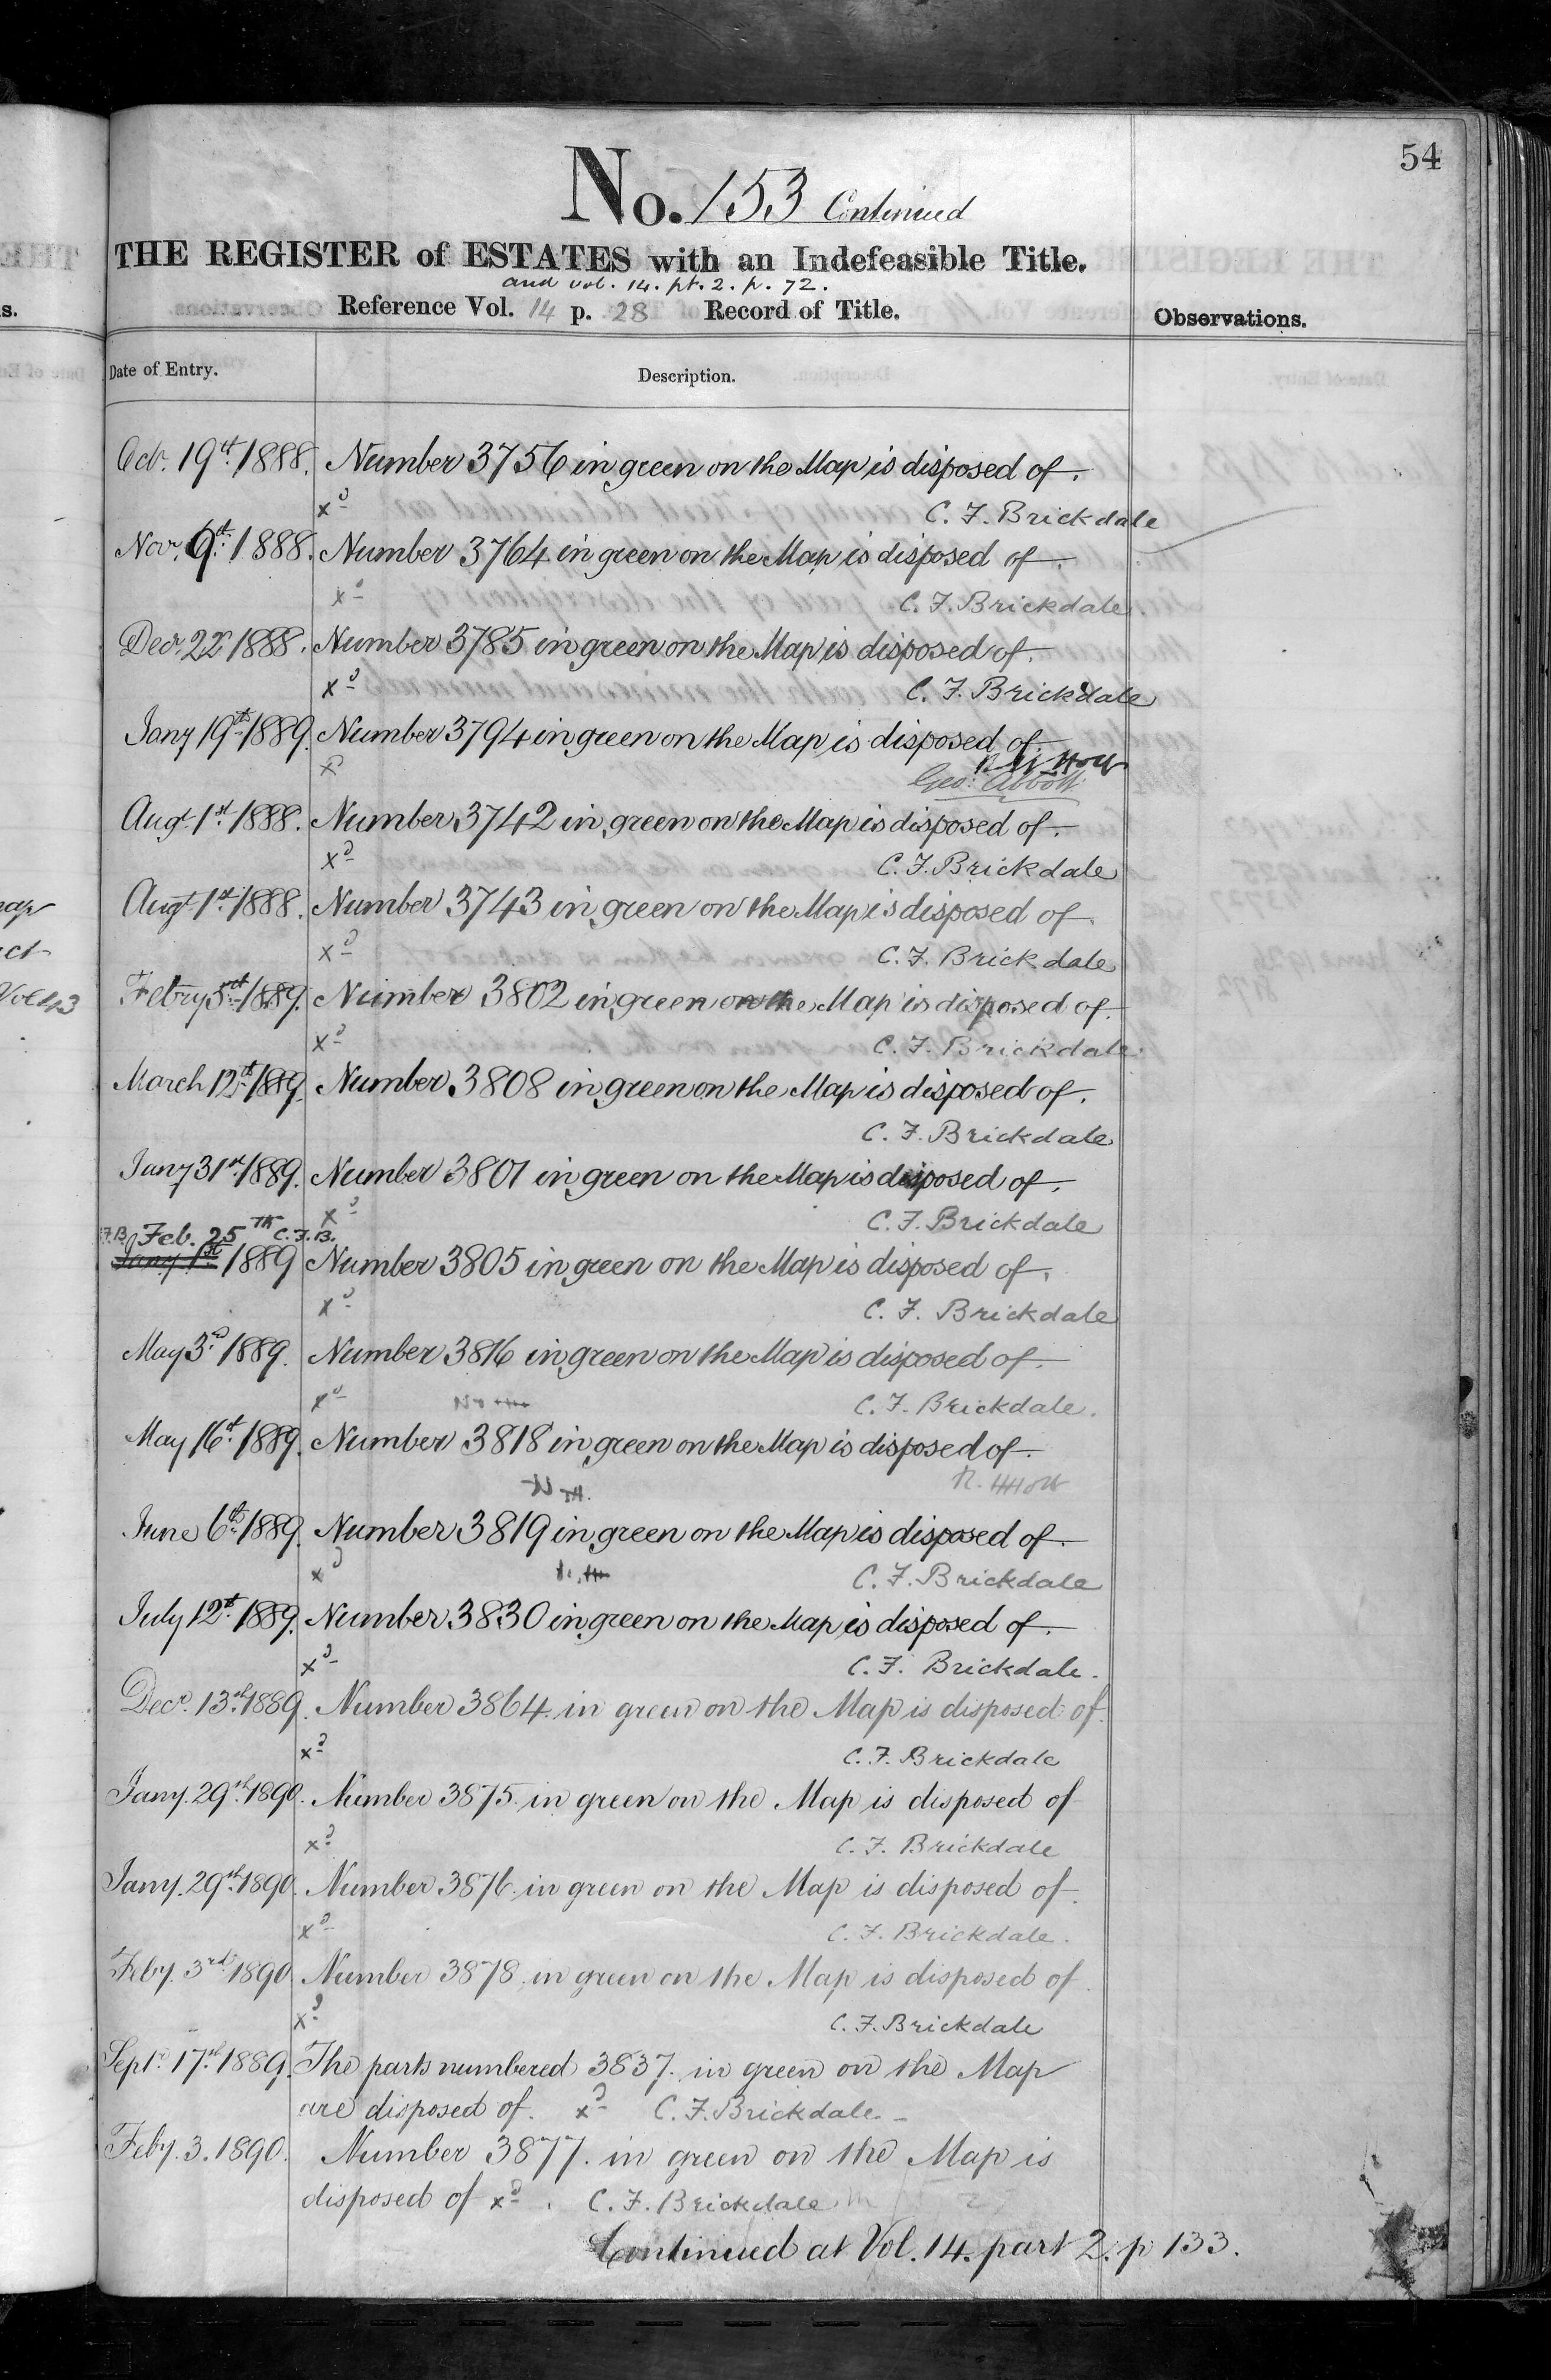 54
No. 153 Continued
THE REGISTER of ESTATES with an Indefeasible Title.
and vol. 14. pt. 2. p. 72.
Reference Vol. 14 p. 28 Record of Title.
Observations.
Date of Entry. Description.
Octr. 19th. 1888. Number 3756 in green on the Map is disposed of.
xd C. F. Brickdale
Novr. 6th. 1888. Number 3764 in green on the Map is disposed of.
xd C. F. Brickdale
Decr. 22 1888. Number 3785 in green on the Map is disposed of.
xd C. F. Brickdale
Jany 19th 1889. Number 3794 in green on the Map is disposed of.
Geo: Abbott
Augt. 1st. 1888. Number 3742 in green on the Map is disposed of.
xd C. F. Brickdale
Augt. 1st. 1888. Number 3743 in green on the Map is disposed of
xd C. F. Brickdale
Febry 5th 1889. Number 3802 in green on the Map is disposed of.
xd C. F. Brickdale
March 12th 1889. Number 3808 in green on the Map is disposed of.
C. F. Brickdale
Jany 31st. 1889. Number 3801 in green on the Map is disposed of.
xd C. F. Brickdale
Feb. 25TH C.F.B.
Jany. 1st 1889 Number 3805 in green on the Map is disposed of.
xd C. F. Brickdale
May 3rd 1889. Number 3816 in green on the Map is disposed of.
xd C. F. Brickdale.
May 16th. 1889. Number 3818 in green on the Map is disposed of.
June 6th. 1889. Number 3819 in green on the Map is disposed of.
xd C. F. Brickdale
July 12th. 1889. Number 3830 in green on the Map is disposed of.
xd C. F. Brickdale.
Decr. 13th. 1889. Number 3864. in green on the Map is disposed of.
xd C. F. Brickdale
Jany. 29th. 1890. Number 3875. in green on the Map is disposed of
xd C. F. Brickdale
Jany. 29th. 1890. Number 3876. in green on the Map is disposed of.
xd C. F. Brickdale.
Feby. 3rd. 1890. Number 3878. in green on the Map is disposed of.
xd C. F. Brickdale
Septr. 17th. 1889. The parts numbered 3837. in green on the Map
are disposed of. xd C. F. Brickdale.
Feby. 3. 1890. Number 3877. in green on the Map is
disposed of xd. C. F. Brickdale
Continued at Vol. 14. part 2. p 133.